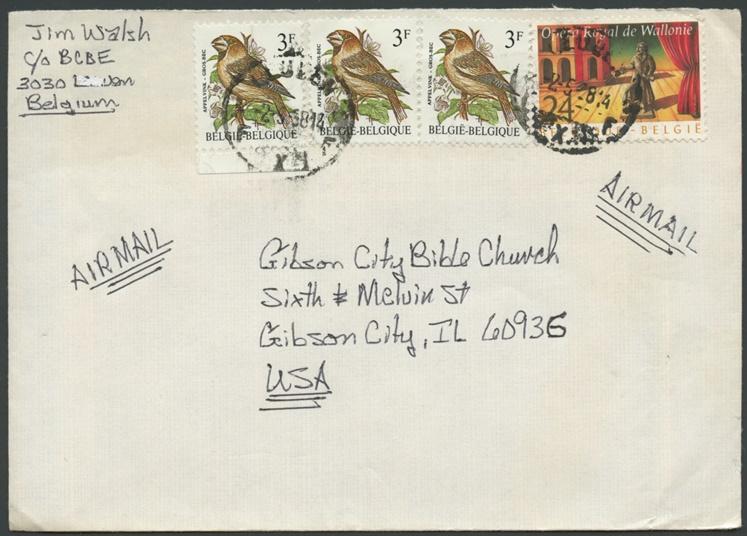 Jim Walsh
c/o BCBE
3030
Belgium
3F
APPELVINK - GROS-BEC
BELGIË-BELGIQUE
3F
APPELVINK - GROS-BEC
BELGIË-BELGIQUE
3F
APPELVINK - GROS-BEC
BELGIË-BELGIQUE
Opéra Royal de Wallonie
24
BELGIË
AIRMAIL
AIRMAIL
Gibson City Bible Church
Sixth & Melvin St
Gibson City, IL 60936
USA